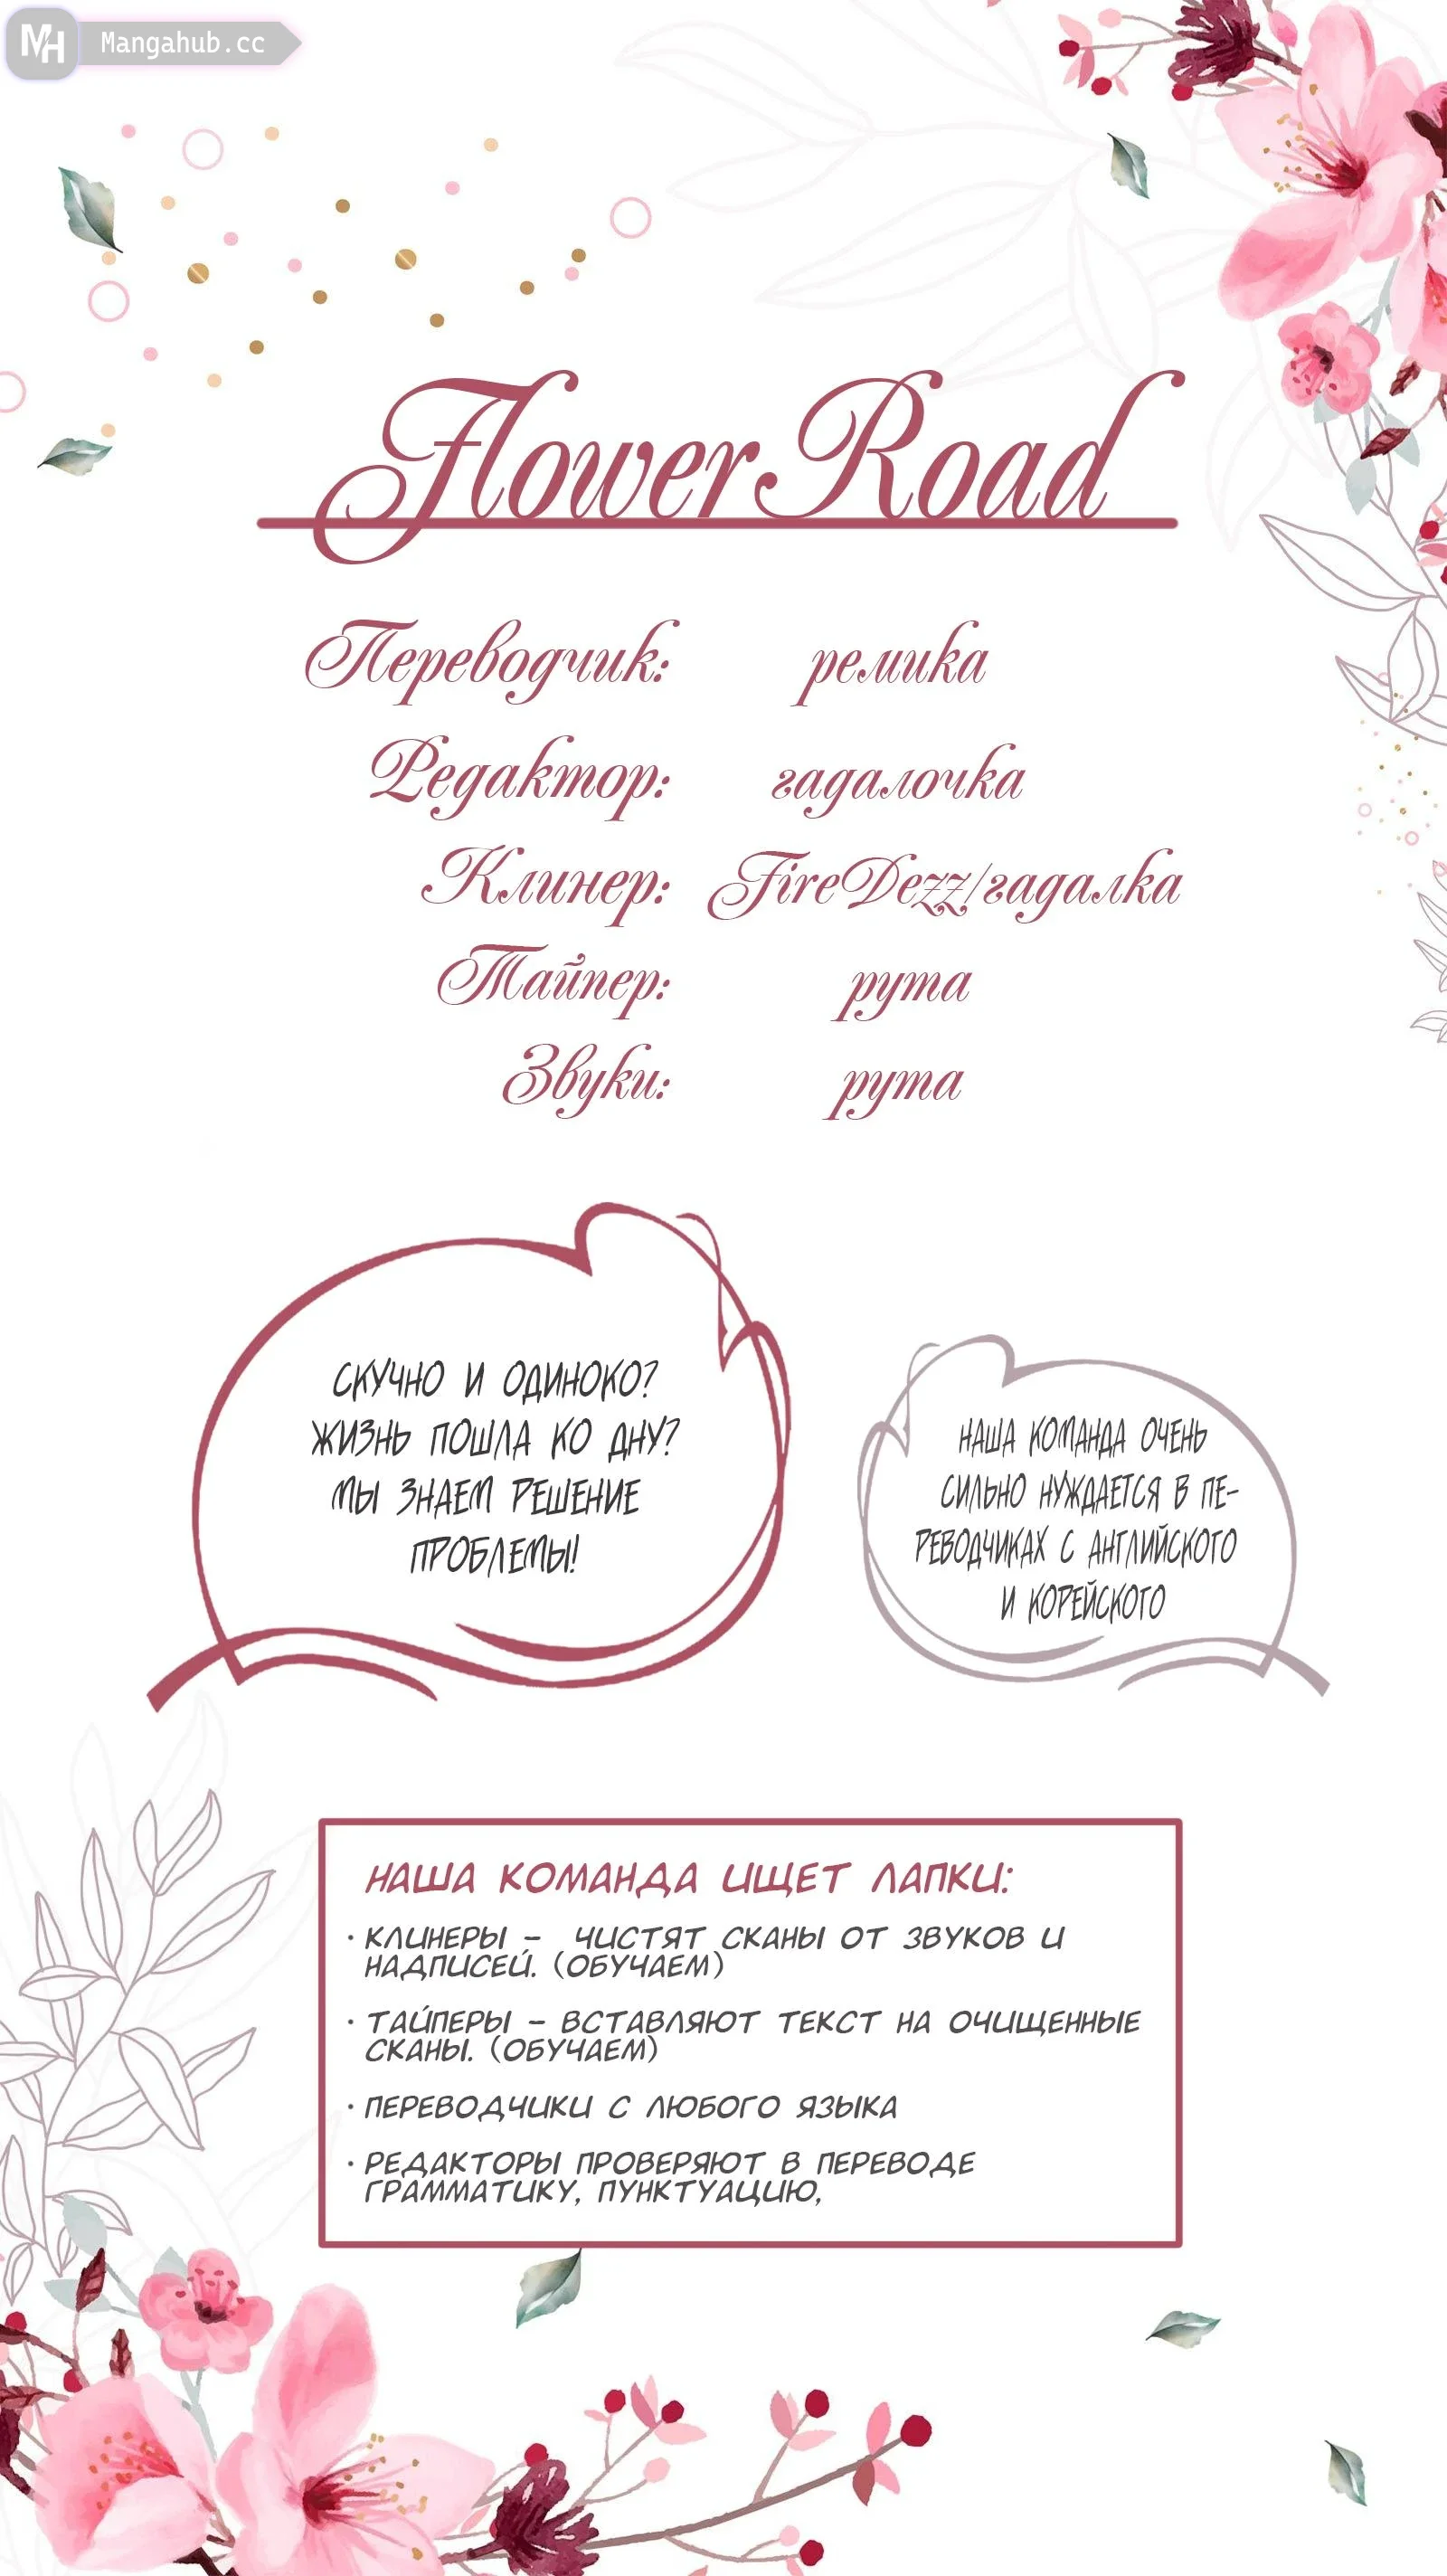 MH Mangahub.cc
FlowerRoad
Переводчик: ремика
Редактор: гадалочка
Клинер: FireDezz/гадалка
Тайпер: рута
Звуки: рута
СКУЧНО И ОДИНОКО?
ЖИЗНЬ ПОШЛА КО ДНУ?
МЫ ЗНАЕМ РЕШЕНИЕ
ПРОБЛЕМЫ!
НАША КОМАНДА ОЧЕНЬ
СИЛЬНО НУЖДАЕТСЯ В ПЕ-
РЕВОДЧИКАХ С АНГЛИЙСКОГО
И КОРЕЙСКОГО
НАША КОМАНДА ИЩЕТ ЛАПКИ:
· КЛИНЕРЫ – ЧИСТЯТ СКАНЫ ОТ ЗВУКОВ И
НАДПИСЕЙ. (ОБУЧАЕМ)
· ТАЙПЕРЫ – ВСТАВЛЯЮТ ТЕКСТ НА ОЧИЩЕННЫЕ
СКАНЫ. (ОБУЧАЕМ)
· ПЕРЕВОДЧИКИ С ЛЮБОГО ЯЗЫКА
· РЕДАКТОРЫ ПРОВЕРЯЮТ В ПЕРЕВОДЕ
ГРАММАТИКУ, ПУНКТУАЦИЮ,